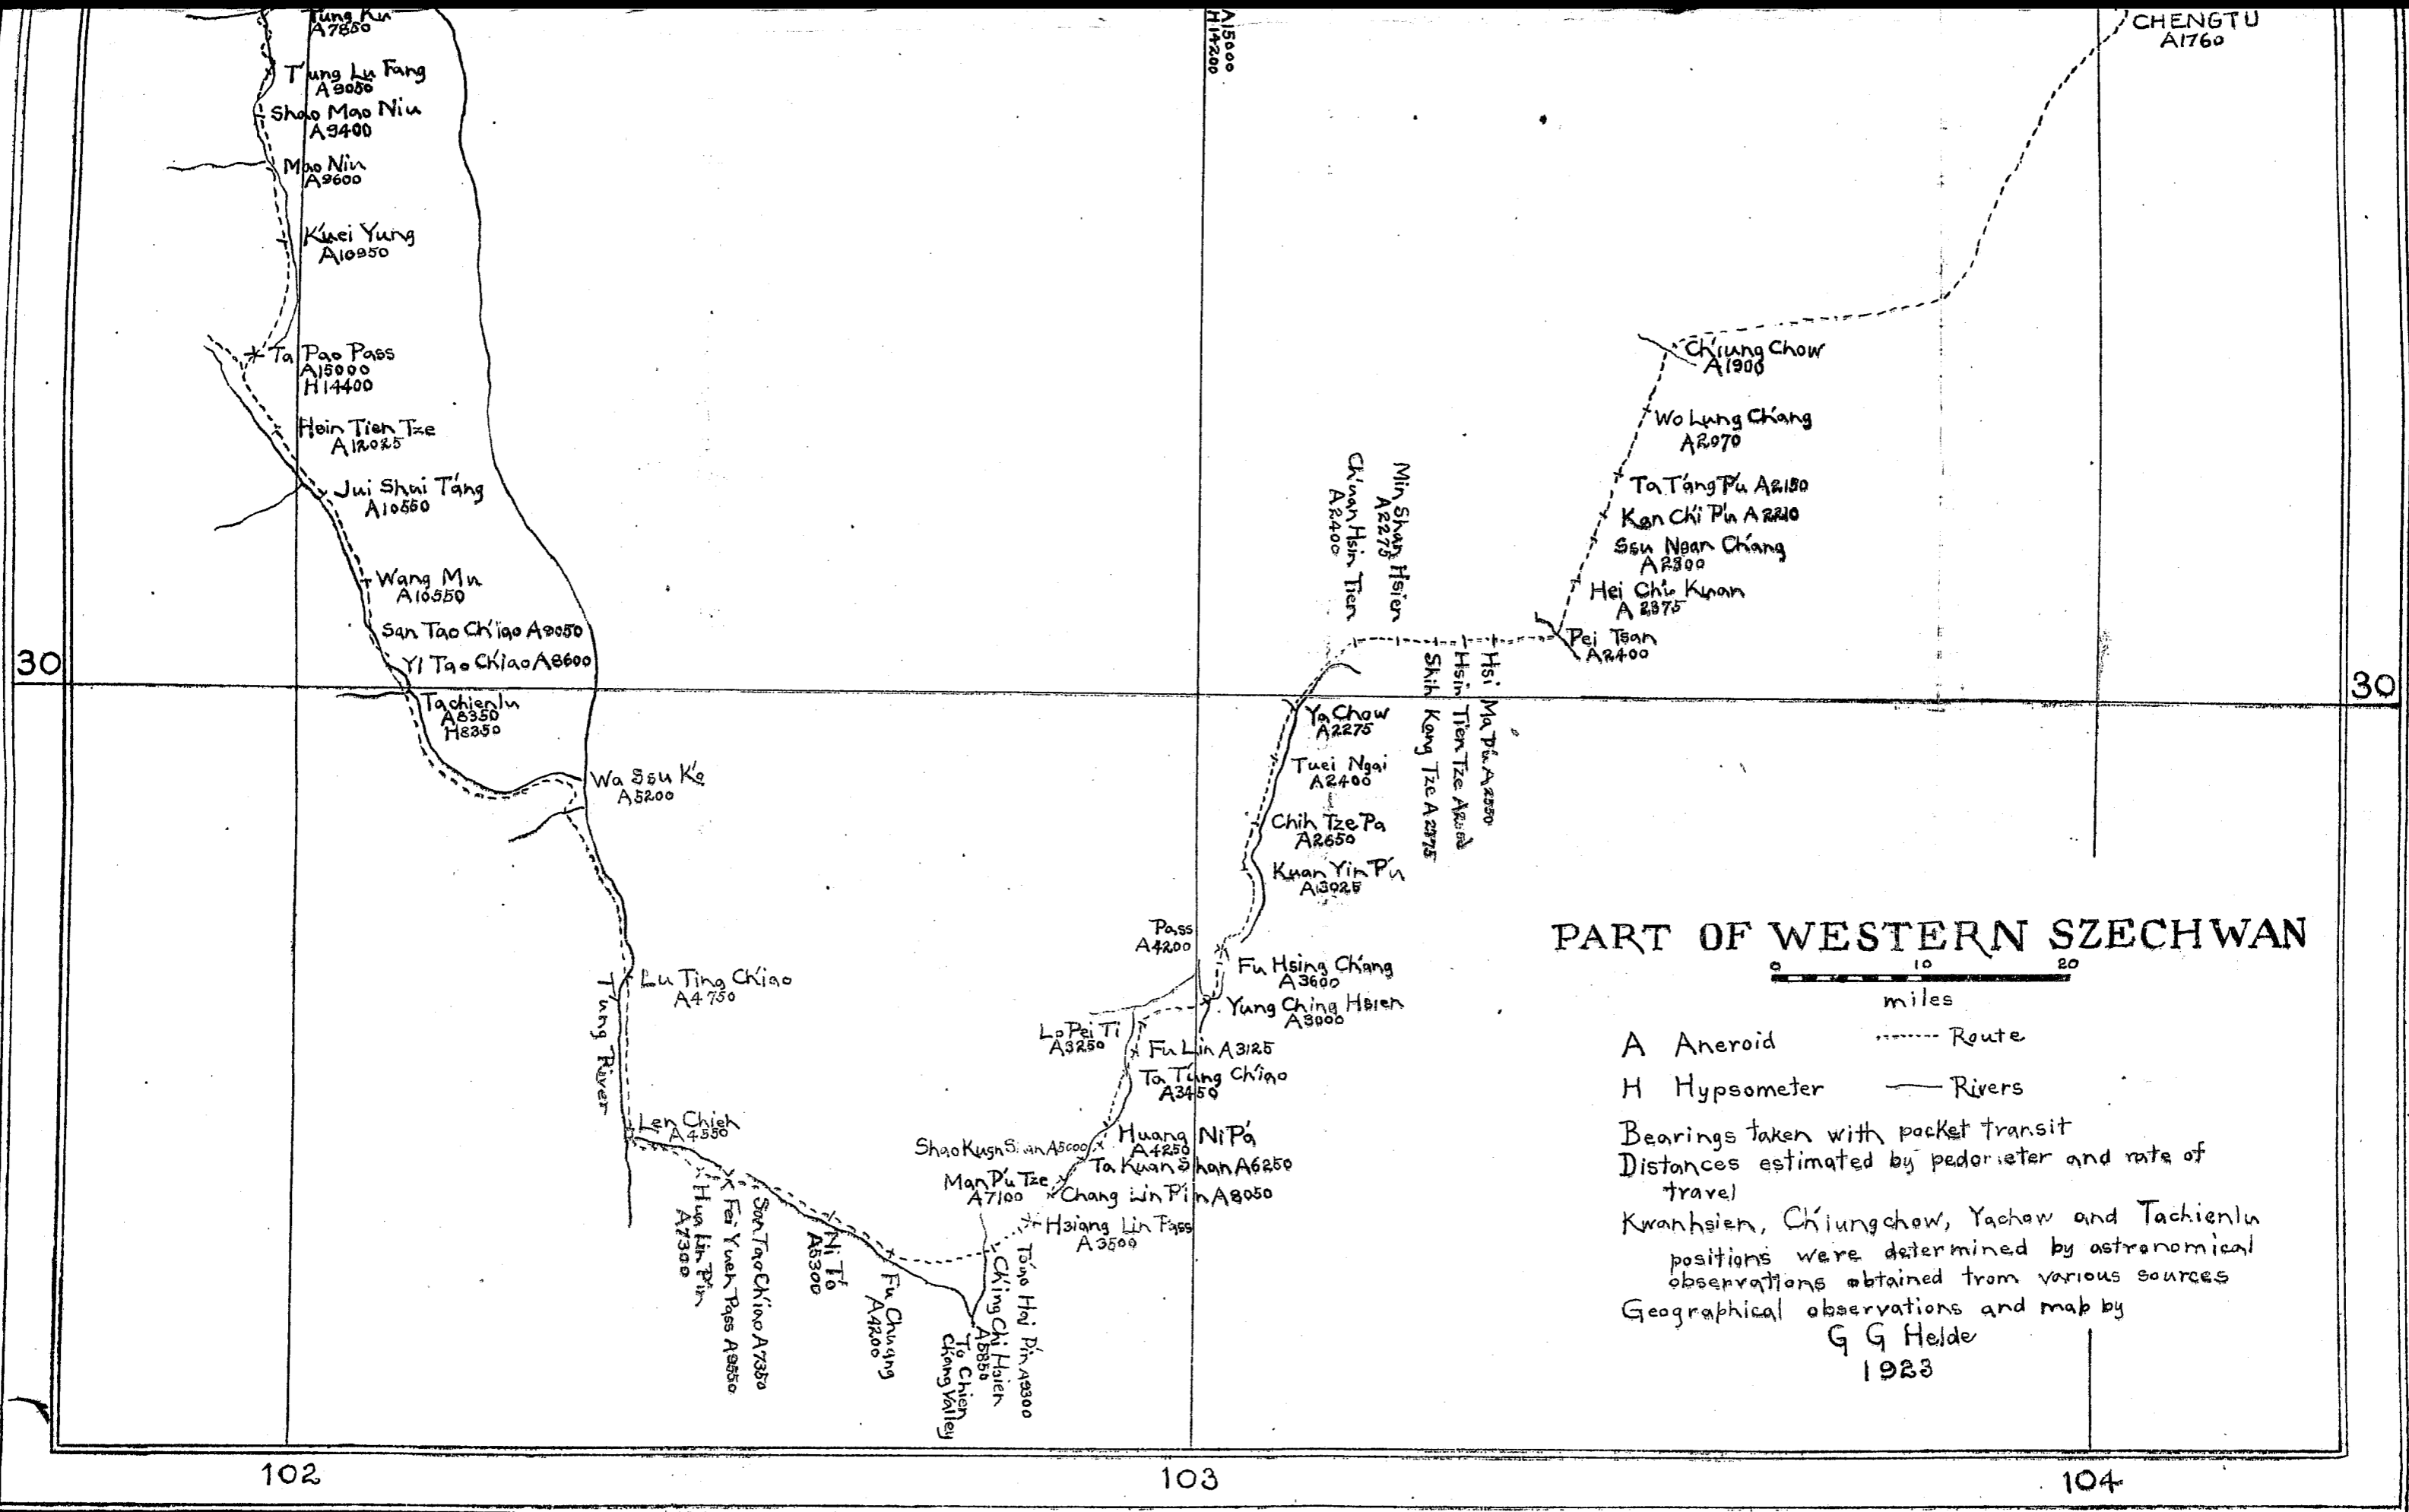 Tung Ku
A7850
T'ung Lu Fang
A9050
Shao Mao Niu
A9400
Mao Niu
A9600
Kuei Yung
A10950
Ta Pao Pass
A15000
H14400
Hsin Tien Tze
A12025
Jui Shui T'ang
A10550
Wang Mu
A10550
San Tao Ch'iao A9050
Yi Tao Ch'iao A8600
Tachienlu
A8350
H8350
Wa Ssu K'o
A5200
Lu Ting Ch'iao
A4750
T'ung River
Len Chieh
A4550
Hua Lin P'in
A7300
Fei Yueh Pass A9550
San Tao Ch'iao A7350
Ni T'o
A5300
Fu Chuang
A4200
To Chien
Chang Valley
Ch'ing Ch'i Hsien
A5850
T'ao Hai P'in A9300
Hsiang Lin Pass
A3500
Chang Lin P'in A8050
Man P'u Tze
A7100
Ta Kuan Shan A6250
Shao Kuan Shan A5000
Huang Ni P'a
A4250
Ta T'ung Ch'iao
A3450
Fu Lin A3125
Lo Pei Ti
A3250
Yung Ching Hsien
A3000
Fu Hsing Ch'ang
A3600
Pass
A4200
Kuan Yin P'u
A3025
Chih Tze Pa
A2650
Tuei Ngai
A2400
Ya Chow
A2275
Ch'uan Hsin Tien
A2400
Min Shan Hsien
A2275
Shih Kang Tze A2375
Hsin Tien Tze
Hsi Ma P'u A2550
Pei Tsan
A2400
Hei Chu Kuan
A2375
Ssu Ngan Ch'ang
A2300
Kan Ch'i P'u A2210
Ta T'ang P'u A2150
Wo Lung Ch'ang
A2070
Ch'iung Chow
A1900
CHENGTU
A1760
A15000
H14200
30
30
102
103
104
PART OF WESTERN SZECHWAN
0 10 20
miles
A Aneroid ------- Route
H Hypsometer —— Rivers
Bearings taken with pocket transit
Distances estimated by pedometer and rate of
travel
Kwanhsien, Ch'iungchow, Yachow and Tachienlu
positions were determined by astronomical
observations obtained from various sources
Geographical observations and map by
G G Helde
1923